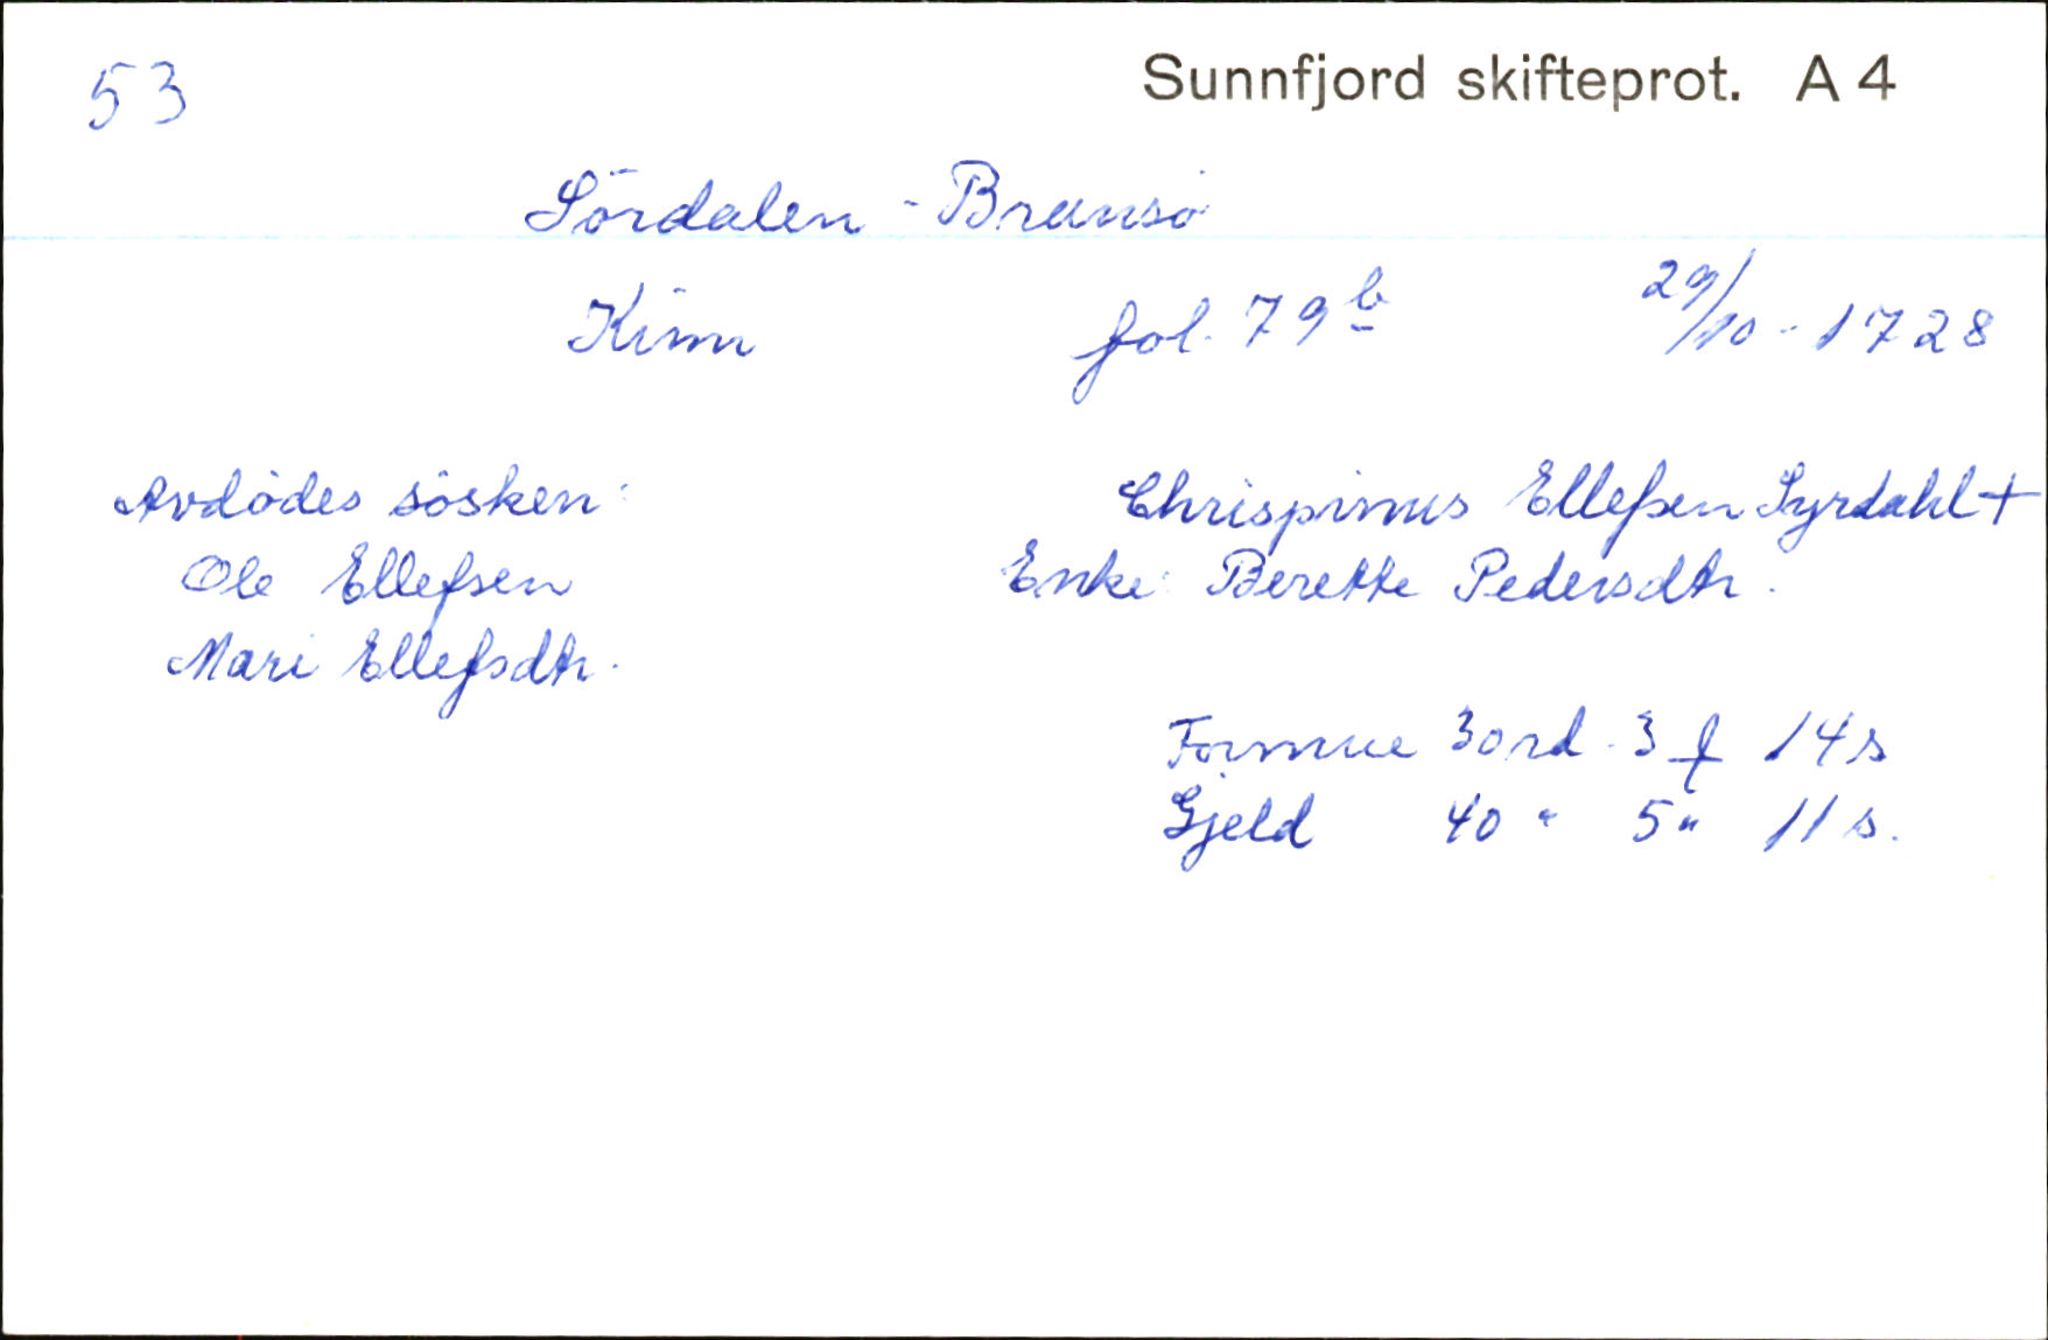 53
Sunnfjord skifteprot. A 4
Sördalen - Bransö
Kinn fol. 79 b 29/10 - 1728
Avdödes sösken: Chrispinus Ellefsen Syrdahl +
Ole Ellefsen Enke: Berette Pedersdtr.
Mari Ellefsdtr.
Formue 30 rd. 3 ƒ 14 s
Gjeld 40 " 5 " 11 s.